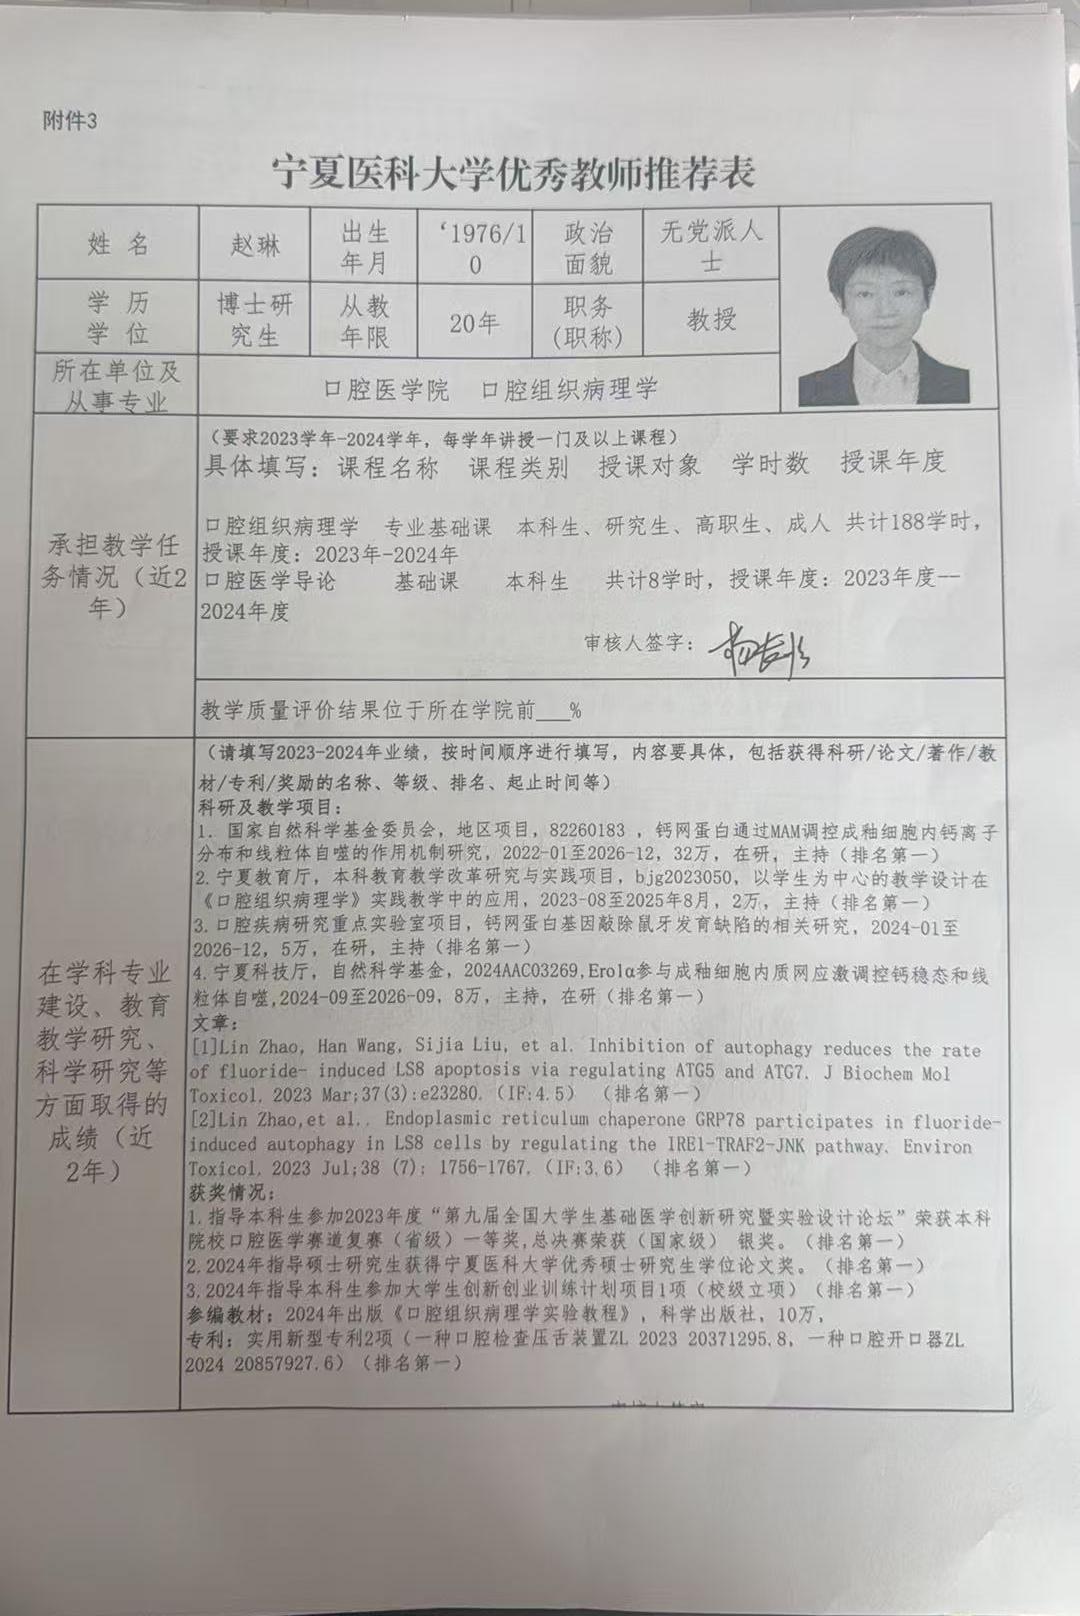 附件3
宁夏医科大学优秀教师推荐表
姓 名
赵琳
出生
年月
‘1976/1
0
政治
面貌
无党派人
士
学 历
学 位
博士研
究生
从教
年限
20年
职务
(职称)
教授
所在单位及
从事专业
口腔医学院 口腔组织病理学
承担教学任
务情况（近2
年）
（要求2023学年-2024学年，每学年讲授一门及以上课程）
具体填写：课程名称 课程类别 授课对象 学时数 授课年度
口腔组织病理学 专业基础课 本科生、研究生、高职生、成人 共计188学时，
授课年度：2023年-2024年
口腔医学导论 基础课 本科生 共计8学时，授课年度：2023年度--
2024年度
审核人签字：
教学质量评价结果位于所在学院前___%
在学科专业
建设、教育
教学研究、
科学研究等
方面取得的
成绩（近
2年）
（请填写2023-2024年业绩，按时间顺序进行填写，内容要具体，包括获得科研/论文/著作/教
材/专利/奖励的名称、等级、排名、起止时间等）
科研及教学项目：
1. 国家自然科学基金委员会，地区项目，82260183 ，钙网蛋白通过MAM调控成釉细胞内钙离子
分布和线粒体自噬的作用机制研究，2022-01至2026-12，32万，在研，主持（排名第一）
2.宁夏教育厅，本科教育教学改革研究与实践项目，bjg2023050，以学生为中心的教学设计在
《口腔组织病理学》实践教学中的应用，2023-08至2025年8月，2万，主持（排名第一）
3.口腔疾病研究重点实验室项目，钙网蛋白基因敲除鼠牙发育缺陷的相关研究，2024-01至
2026-12，5万，在研，主持（排名第一）
4.宁夏科技厅，自然科学基金，2024AAC03269,Ero1α参与成釉细胞内质网应激调控钙稳态和线
粒体自噬,2024-09至2026-09，8万，主持，在研（排名第一）
文章：
[1]Lin Zhao, Han Wang, Sijia Liu, et al. Inhibition of autophagy reduces the rate
of fluoride- induced LS8 apoptosis via regulating ATG5 and ATG7. J Biochem Mol
Toxicol. 2023 Mar;37(3):e23280.（IF:4.5）（排名第一）
[2]Lin Zhao,et al.. Endoplasmic reticulum chaperone GRP78 participates in fluoride-
induced autophagy in LS8 cells by regulating the IRE1-TRAF2-JNK pathway. Environ
Toxicol. 2023 Jul;38 (7): 1756-1767.（IF:3.6）（排名第一）
获奖情况：
1.指导本科生参加2023年度“第九届全国大学生基础医学创新研究暨实验设计论坛”荣获本科
院校口腔医学赛道复赛（省级）一等奖,总决赛荣获（国家级） 银奖。（排名第一）
2.2024年指导硕士研究生获得宁夏医科大学优秀硕士研究生学位论文奖。（排名第一）
3.2024年指导本科生参加大学生创新创业训练计划项目1项（校级立项）（排名第一）
参编教材：2024年出版《口腔组织病理学实验教程》，科学出版社，10万，
专利：实用新型专利2项（一种口腔检查压舌装置ZL 2023 20371295.8，一种口腔开口器ZL
2024 20857927.6）（排名第一）